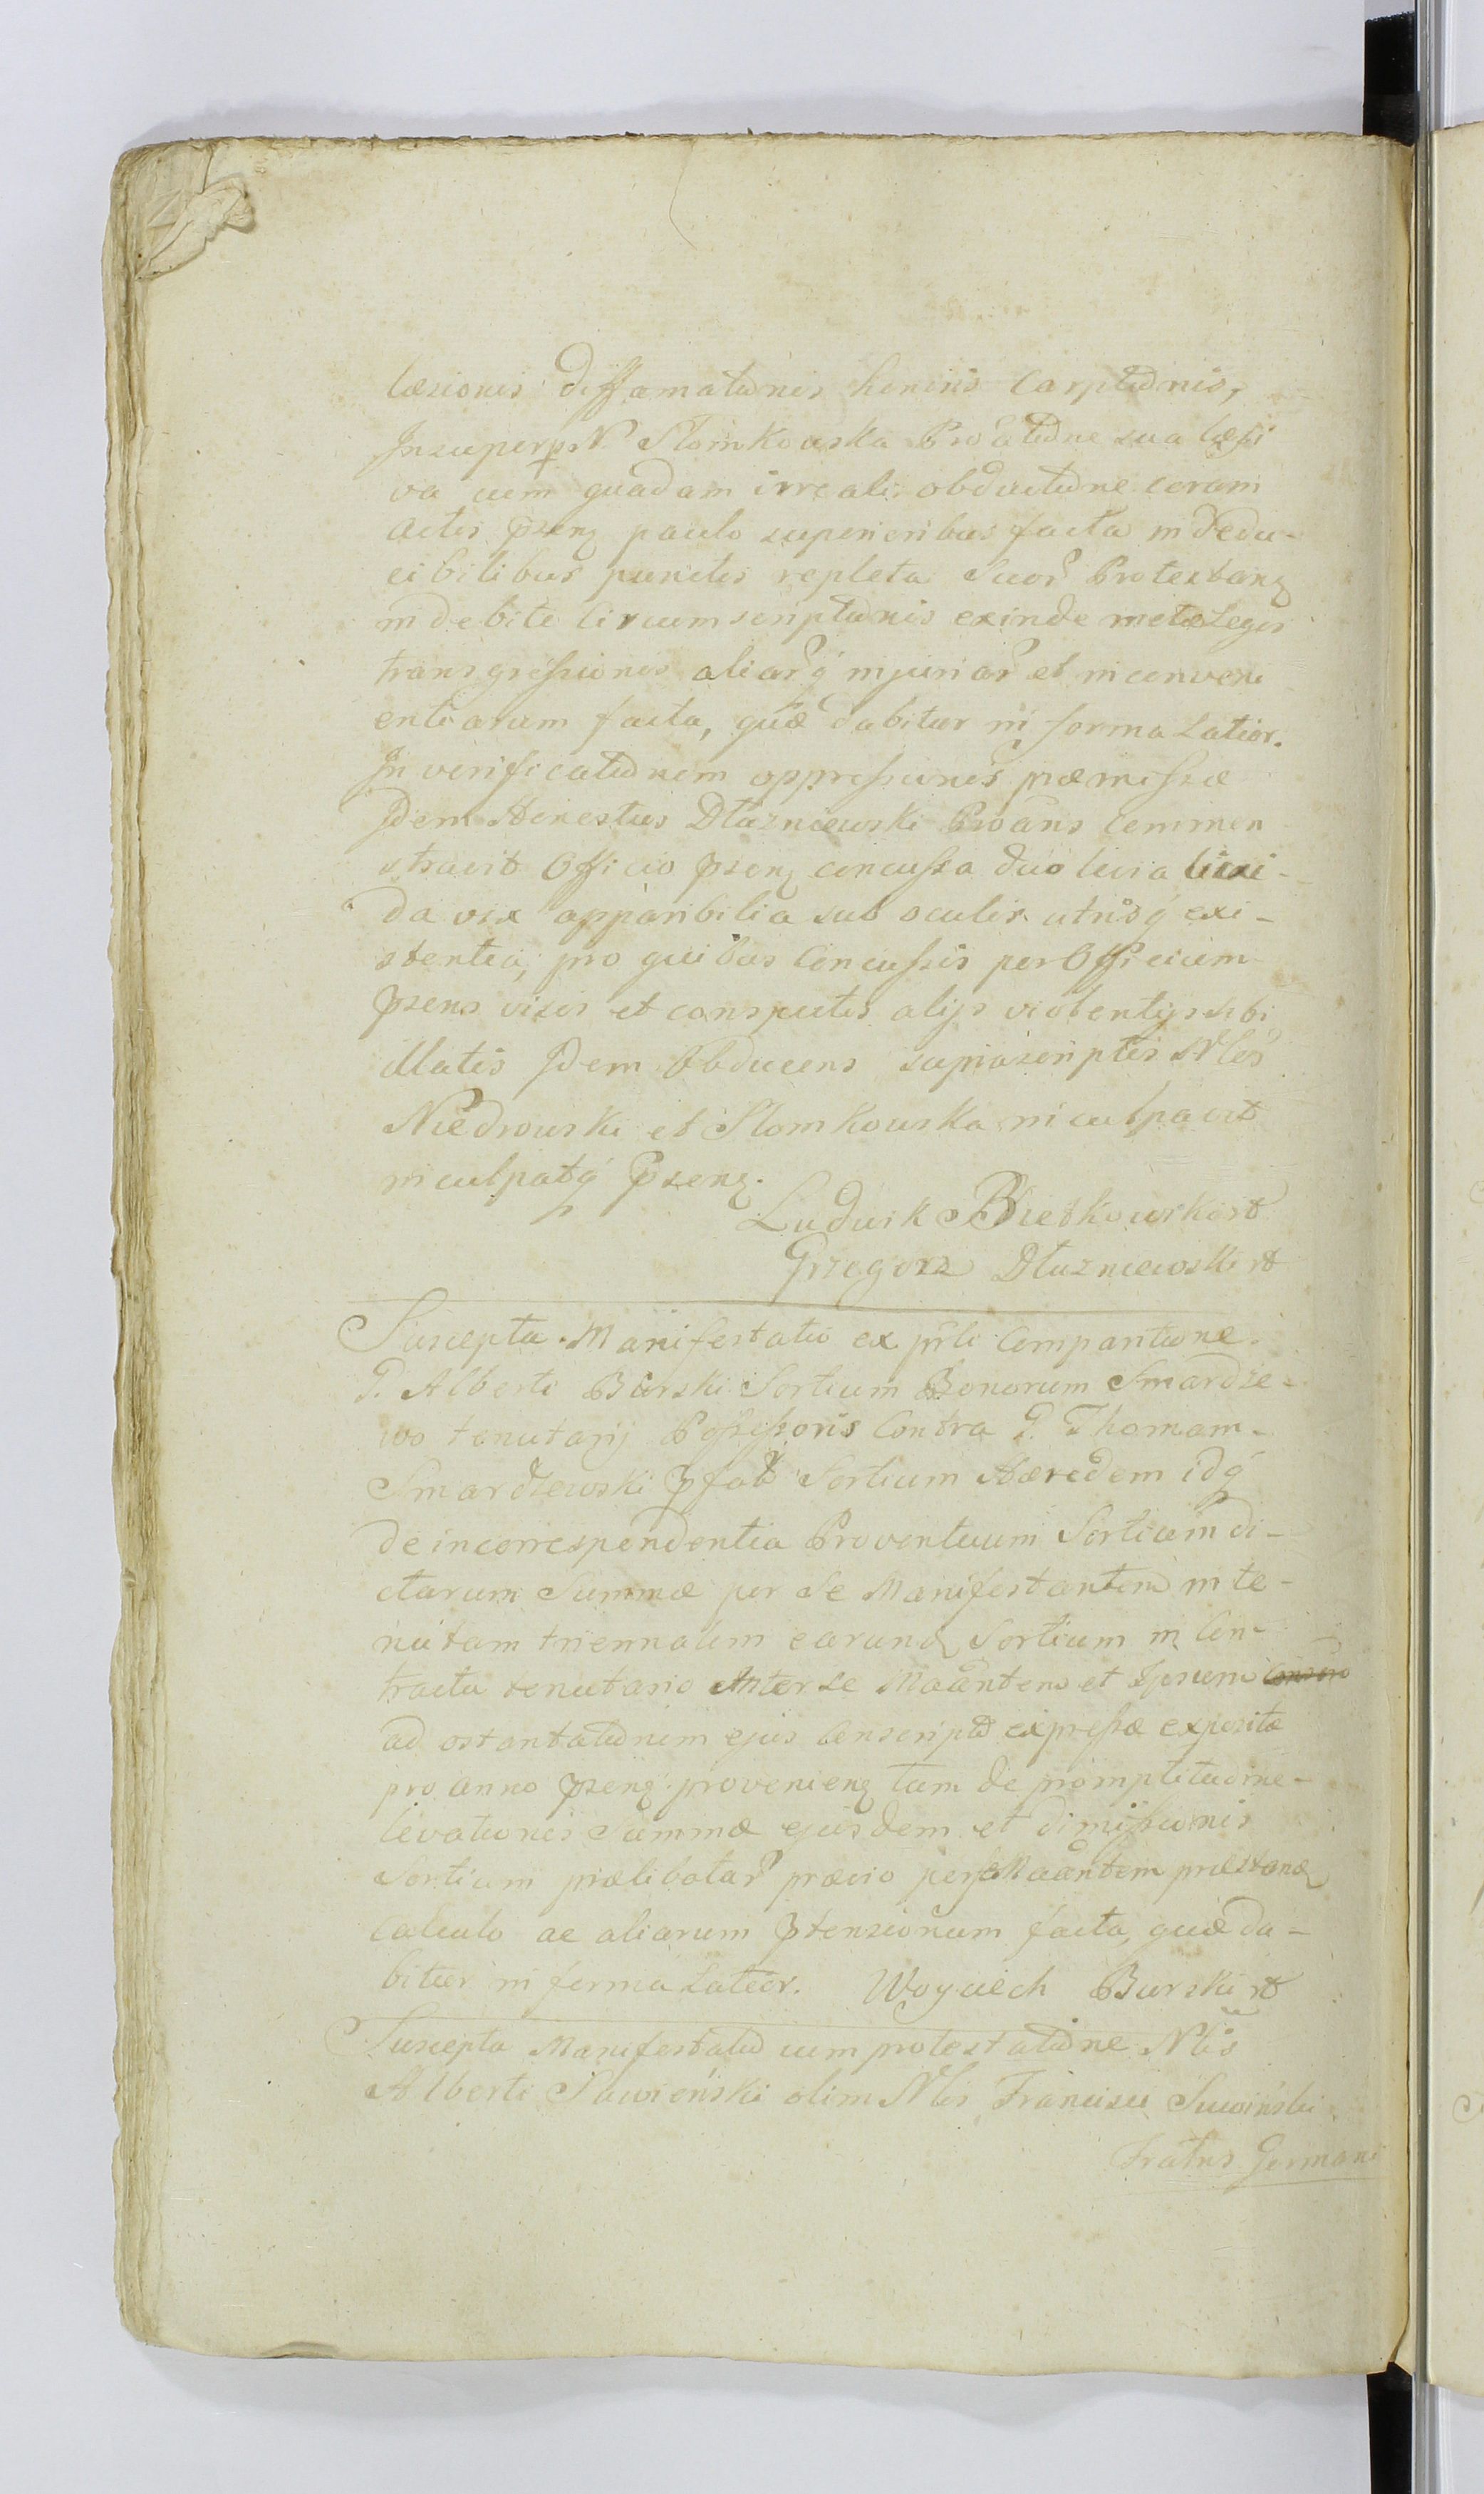 læsionis diffamationis honoris carptionis,
Insuper p N. Słomkowska Proãtione sua læsi
va cum quadam irreali obductione coram
Actis pseng paulo superioribus facta indedu-
cibilibus punctis repleta Suor Protestang
indebite circumscriptionis exinde metæ Legis
transgressionis aliarq injuriar et inconveni
entiarum facta, quæ dabitur in forma Latior.
In verificationem oppressionis præmissæ
Idem Honestus Dłuzniewski Proãns commen
stravit Officio pseng concussa duo livia livi-
da vix apparibilia sub oculis utrisq exi-
stentia, pro quibus Concussis per Officium
psens visis et conspectis alijs violentijs sibi
illatis Idem Obducens suprascriptis Nles
Niedrowski et Słomkowska inculpavit
inculpatq pseng.
Ludwik Bietkowski
Grzegorz Dłuzniewski
Suscepta Manifestatio ex pnli Comparitione
G. Alberti Burski Sortium Bonorum Smardze-
wo tenutarij Possessoris Contra G. Thomam
Smardzewski pfat Sortium Hæredem idq
de incorrespondentia Proventuum Sortium di-
ctarum Summæ per Se Manifestantem in te-
nutam triennalem earund Sortium in Con-
tractu tenutario inter se Maãntem et Ipsum
ad ostantationem ejus conscripto expresse exposita
pro anno pseng provenieng tum de promptitudine
levationis Summæ ejusdem et dimissionis
Sortium prælibatar prævio per se Maãntem præstand
calculo ac aliarum ptensionum facta, quæ da-
bitur in forma Latior. Woyciech Burski
Suscepta Manifestatio cum protestatione Nlis
Alberti Sawinski olim Nlis Francisci Suwinski
Fratris Germani